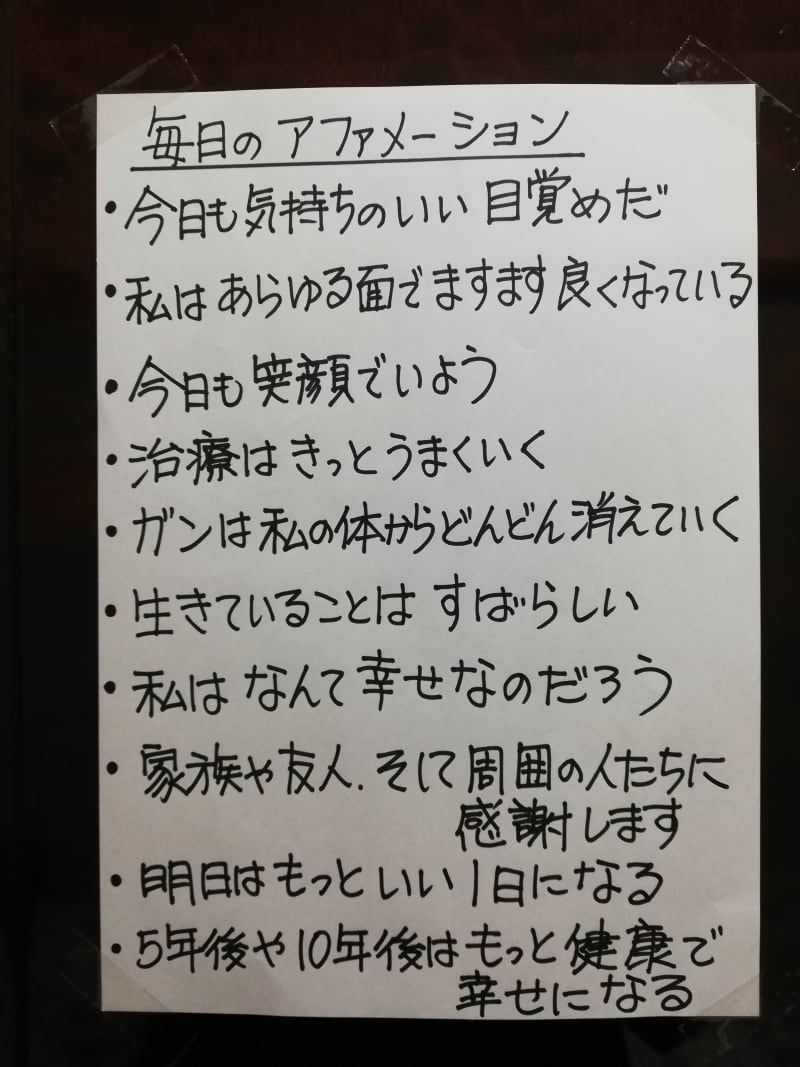 毎日のアファメーション
・今日も気持ちのいい目覚めだ
・私はあらゆる面でますます良くなっている
・今日も笑顔でいよう
・治療はきっとうまくいく
・ガンは私の体からどんどん消えていく
・生きていることはすばらしい
・私はなんて幸せなのだろう
・家族や友人、そして周囲の人たちに
感謝します
・明日はもっといい1日になる
・5年後や10年後はもっと健康で
幸せになる